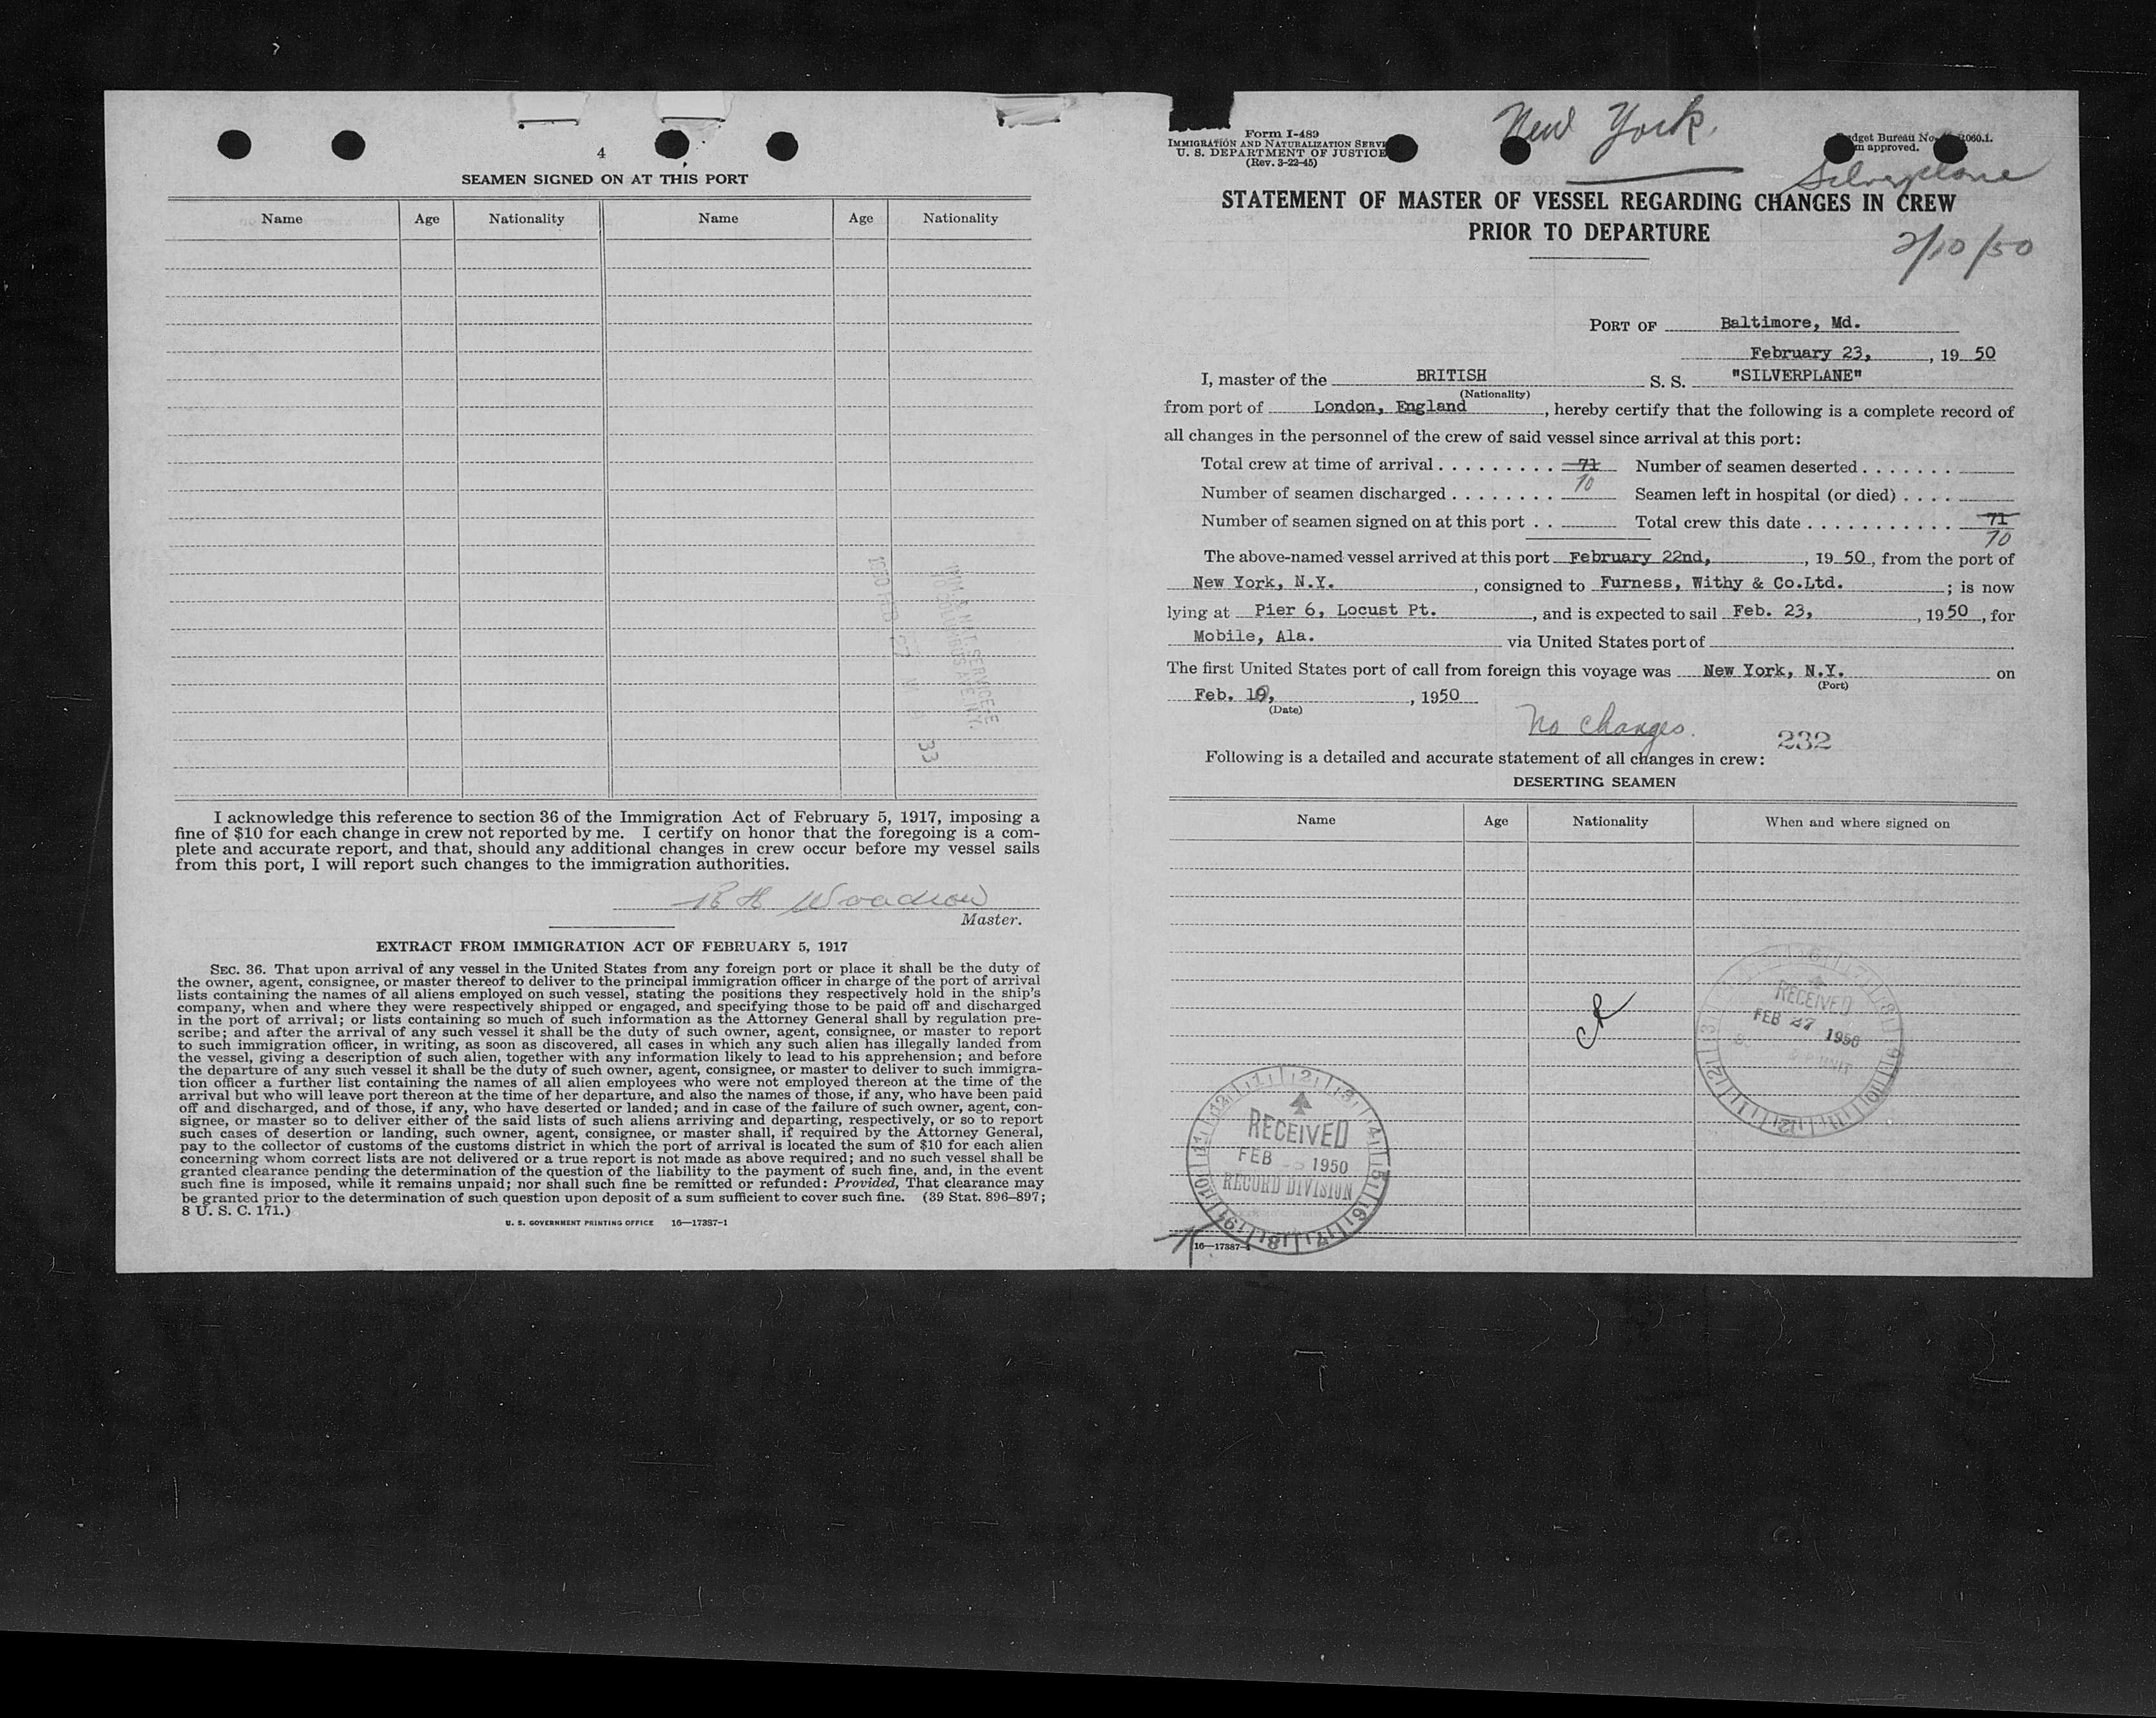 4
SEAMEN SIGNED ON AT THIS PORT
Name Age Nationality Name Age Nationality
33
I acknowledge this reference to section 36 of the Immigration Act of February 5, 1917, imposing a
fine of $10 for each change in crew not reported by me. I certify on honor that the foregoing is a com-
plete and accurate report, and that, should any additional changes in crew occur before my vessel sails
from this port, I will report such changes to the immigration authorities.
Master.
EXTRACT FROM IMMIGRATION ACT OF FEBRUARY 5, 1917
SEC. 36. That upon arrival of any vessel in the United States from any foreign port or place it shall be the duty of
the owner, agent, consignee, or master thereof to deliver to the principal immigration officer in charge of the port of arrival
lists containing the names of all aliens employed on such vessel, stating the positions they respectively hold in the ship's
company, when and where they were respectively shipped or engaged, and specifying those to be paid off and discharged
in the port of arrival; or lists containing so much of such information as the Attorney General shall by regulation pre-
scribe; and after the arrival of any such vessel it shall be the duty of such owner, agent, consignee, or master to report
to such immigration officer, in writing, as soon as discovered, all cases in which any such alien has illegally landed from
the vessel, giving a description of such alien, together with any information likely to lead to his apprehension; and before
the departure of any such vessel it shall be the duty of such owner, agent, consignee, or master to deliver to such immigra-
tion officer a further list containing the names of all alien employees who were not employed thereon at the time of the
arrival but who will leave port thereon at the time of her departure, and also the names of those, if any, who have been paid
off and discharged, and of those, if any, who have deserted or landed; and in case of the failure of such owner, agent, con-
signee, or master so to deliver either of the said lists of such aliens arriving and departing, respectively, or so to report
such cases of desertion or landing, such owner, agent, consignee, or master shall, if required by the Attorney General,
pay to the collector of customs of the customs district in which the port of arrival is located the sum of $10 for each alien
concerning whom correct lists are not delivered or a true report is not made as above required; and no such vessel shall be
granted clearance pending the determination of the question of the liability to the payment of such fine, and, in the event
such fine is imposed, while it remains unpaid; nor shall such fine be remitted or refunded: Provided, That clearance may
be granted prior to the determination of such question upon deposit of a sum sufficient to cover such fine. (39 Stat. 896-897;
8 U. S. C. 171.)
U. S. GOVERNMENT PRINTING OFFICE 16—17387-1
Form I-489
IMMIGRATION AND NATURALIZATION SERV
U. S. DEPARTMENT OF JUSTICE
(Rev. 3-22-45)
New York.
Bureau No.
approved.
Silverplane
STATEMENT OF MASTER OF VESSEL REGARDING CHANGES IN CREW
PRIOR TO DEPARTURE
2/10/50
PORT OF Baltimore, Md.
February 23, , 19 50
I, master of the BRITISH S. S. "SILVERPLANE"
(Nationality)
from port of London, England , hereby certify that the following is a complete record of
all changes in the personnel of the crew of said vessel since arrival at this port:
Total crew at time of arrival . . . . . . . . . 71 Number of seamen deserted . . . . . . .
70
Number of seamen discharged . . . . . . . . Seamen left in hospital (or died) . . . .
Number of seamen signed on at this port . . Total crew this date . . . . . . . . . . . 71
70
The above-named vessel arrived at this port February 22nd, , 19 50, from the port of
New York, N.Y. , consigned to Furness, Withy & Co.Ltd. ; is now
lying at Pier 6, Locust Pt. , and is expected to sail Feb. 23, , 1950, for
Mobile, Ala. via United States port of
The first United States port of call from foreign this voyage was New York, N.Y. on
(Port)
Feb. 19, , 1950
(Date)
No changes.
232
Following is a detailed and accurate statement of all changes in crew:
DESERTING SEAMEN
Name Age Nationality When and where signed on
RECEIVED
FEB 27 1950
UNIT
RECEIVED
FEB 1950
RECORD DIVISION
16—17387-1